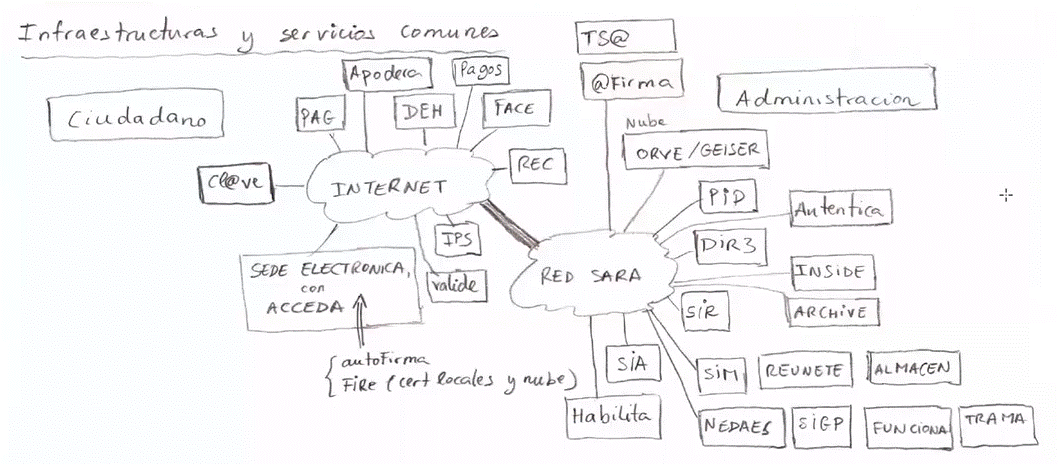 Infraestructuras y servicios comunes
TS@
Apodera
Pagos
@Firma
Administracion
Ciudadano
PAG
DEH
FACE
Nube
ORVE/GEISER
REC
Cl@ve
INTERNET
PID
Autentica
IPS
DIR3
SEDE ELECTRONICA,
con
ACCEDA
valide
RED SARA
INSIDE
SIR
ARCHIVE
autoFirma
FiRe (cert locales y nube)
SIA
SIM
REUNETE
ALMACEN
Habilita
NEDAES
SIGP
FUNCIONA
TRAMA